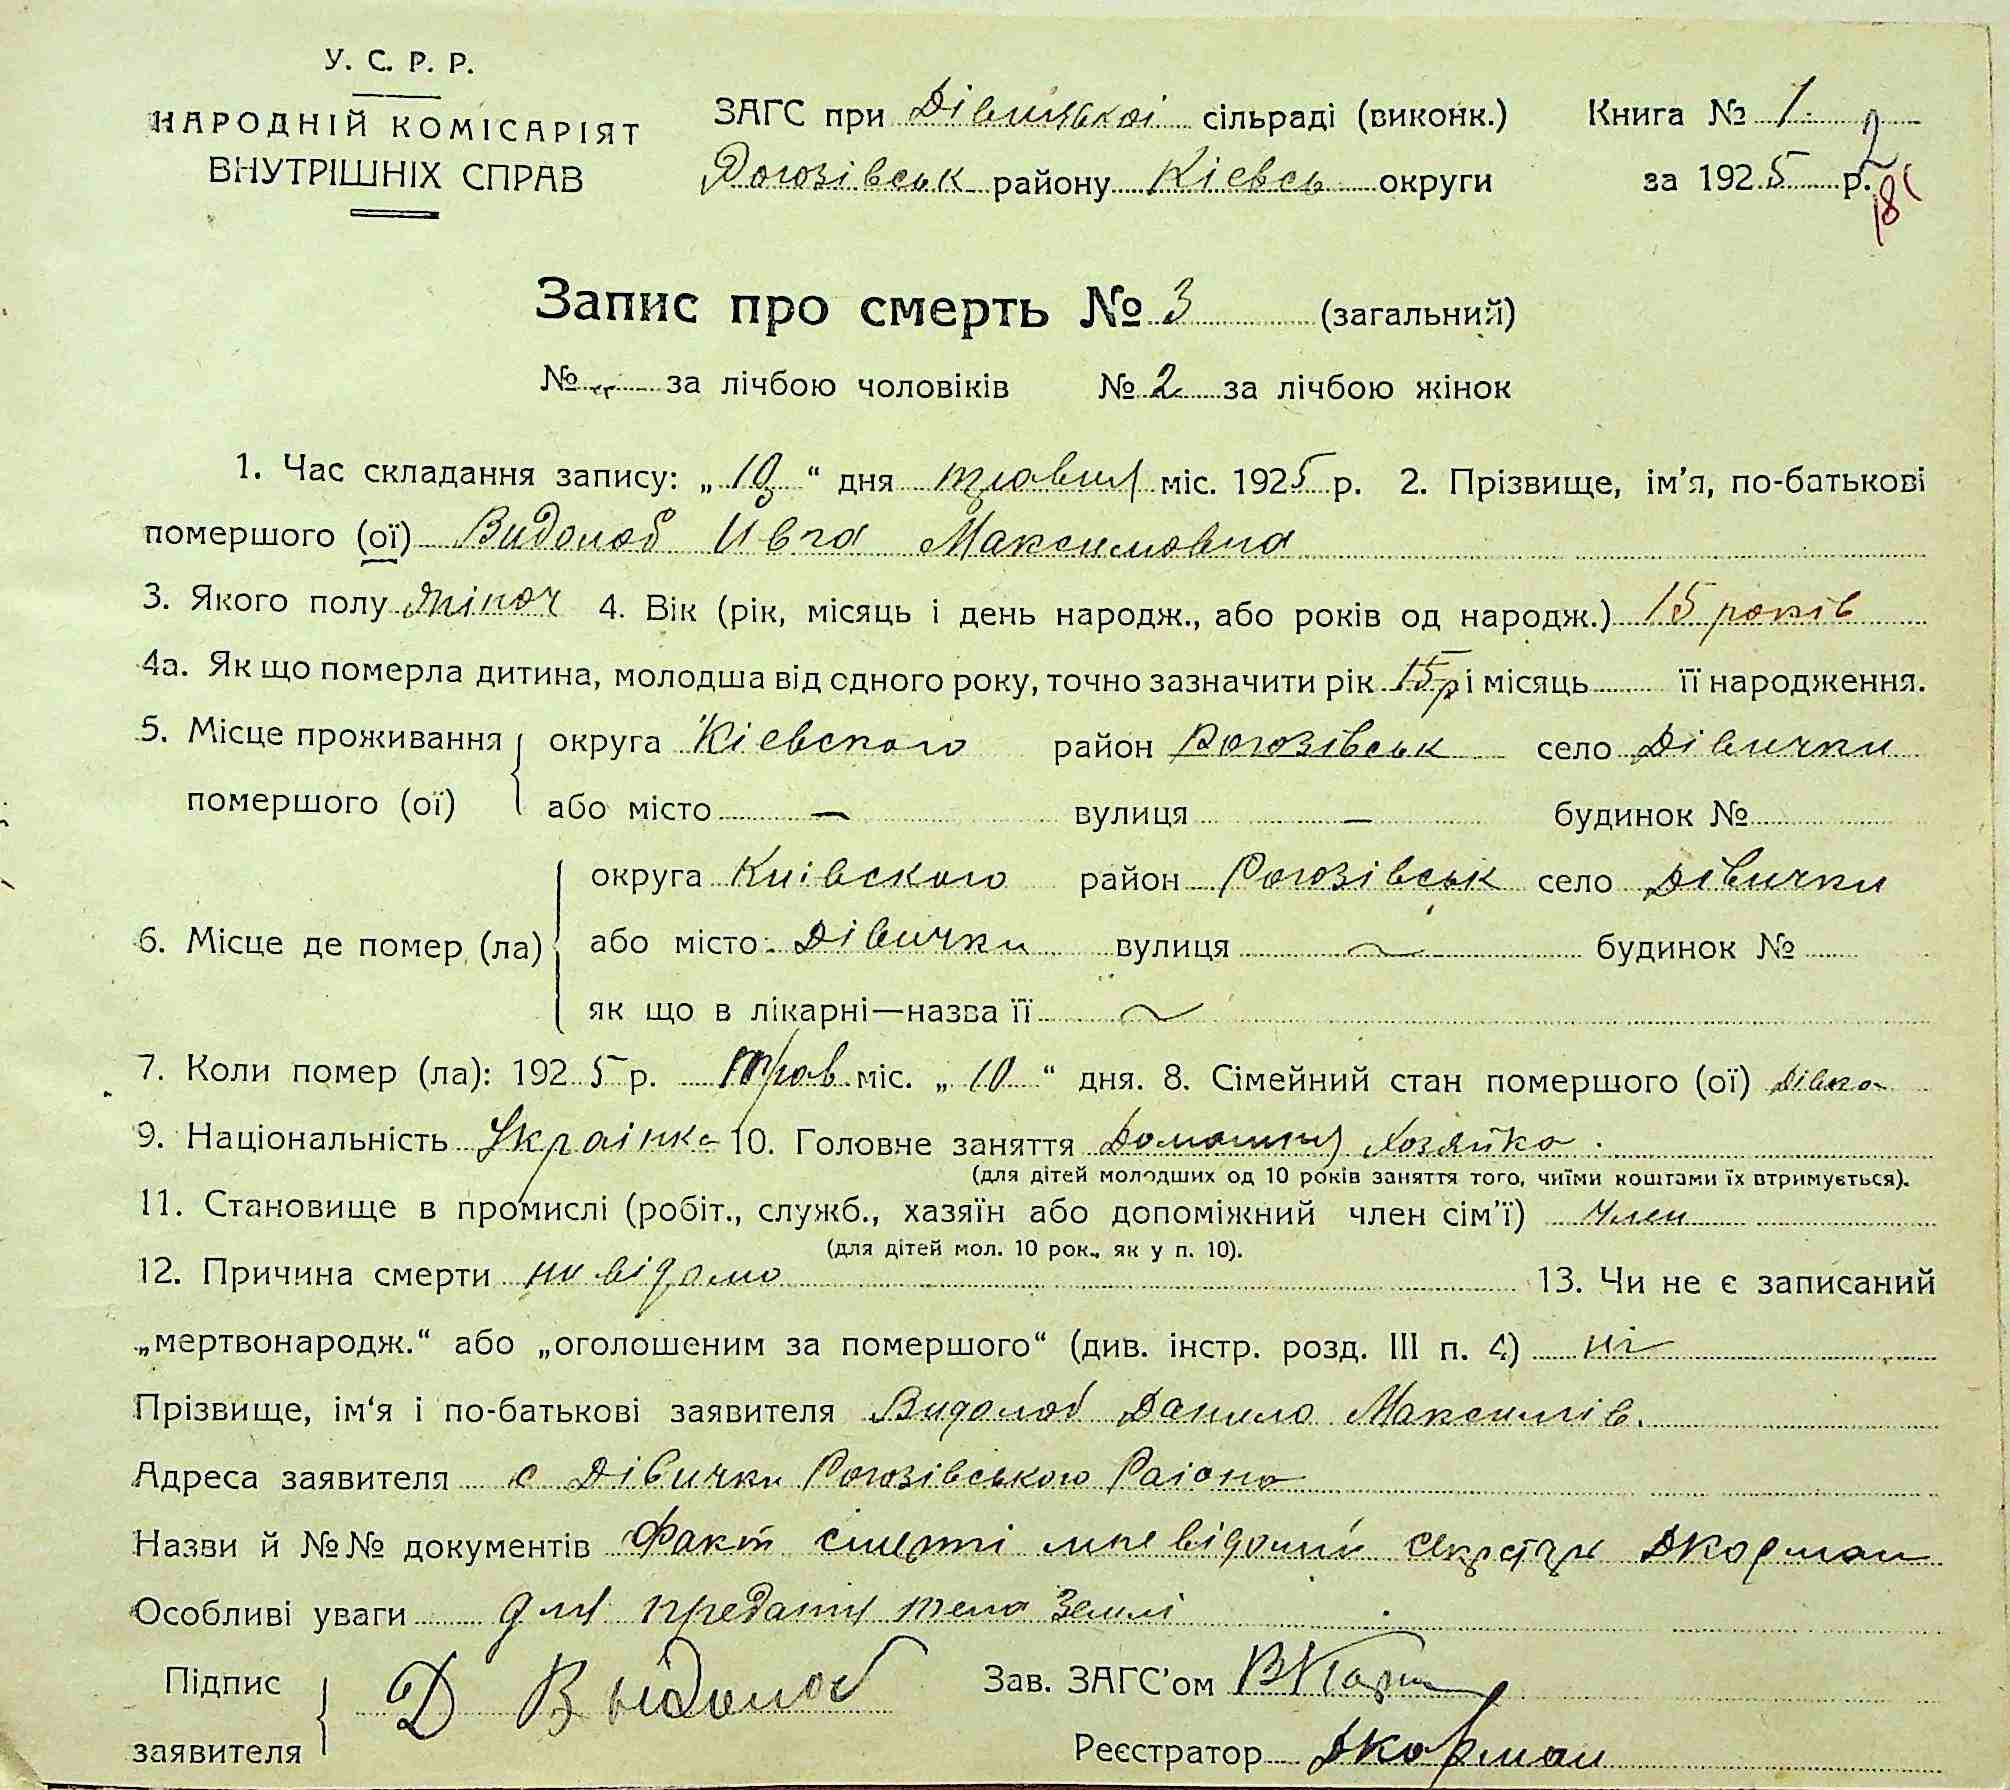 У. С. Р. Р.
НАРОДНІЙ КОМІСАРІЯТ
ВНУТРІШНІХ СПРАВ
ЗАГС при Дівицькоі сільраді (виконк.)
Рогозівськ району Кіевсь округи
Книга № 1
2
за 1925 р.
181
Запис про смерть № 3 (загальний)
№ „ за лічбою чоловіків № 2 за лічбою жінок
1. Час складання запису: „10“ дня травня міс. 1925 р. 2. Прізвище, ім’я, по-батькові
помершого (ої) Видолоб Ивга Максимовна
3. Якого полу жіноч 4. Вік (рік, місяць і день народж., або років од народж.) 15 років
4а. Як що померла дитина, молодша від одного року, точно зазначити рік 15 р і місяць її народження.
5. Місце проживання помершого (ої)
округа Кіевского район Рогозівськ село Дівички
або місто — вулиця — будинок №
6. Місце де помер (ла)
округа Киівского район Рогозівськ село Дівички
або місто Дівички вулиця ~ будинок №
як що в лікарні—назва її ~
7. Коли помер (ла): 1925 р. трав міс. „10“ дня. 8. Сімейний стан помершого (ої) дівка
9. Національність Украінка 10. Головне заняття Домашня Хозяйка.
(для дітей молодших од 10 років заняття того, чиїми коштами їх втримується).
11. Становище в промислі (робіт., служб., хазяїн або допоміжний член сім’ї) член
(для дітей мол. 10 рок., як у п. 10).
12. Причина смерти не відомо 13. Чи не є записаний
„мертвонародж.“ або „оголошеним за помершого“ (див. інстр. розд. III п. 4) ні
Прізвище, ім‘я і по-батькові заявителя Видолоб Данило Максимів.
Адреса заявителя с Дівички Рогозівського Раіона
Назви й №№ документів Факт смерті мне відомий секретарь Дкорман
Особливі уваги для предания тела Землі
Підпис заявителя Д Выдолоб
Зав. ЗАГС’ом
Реєстратор Дкорман